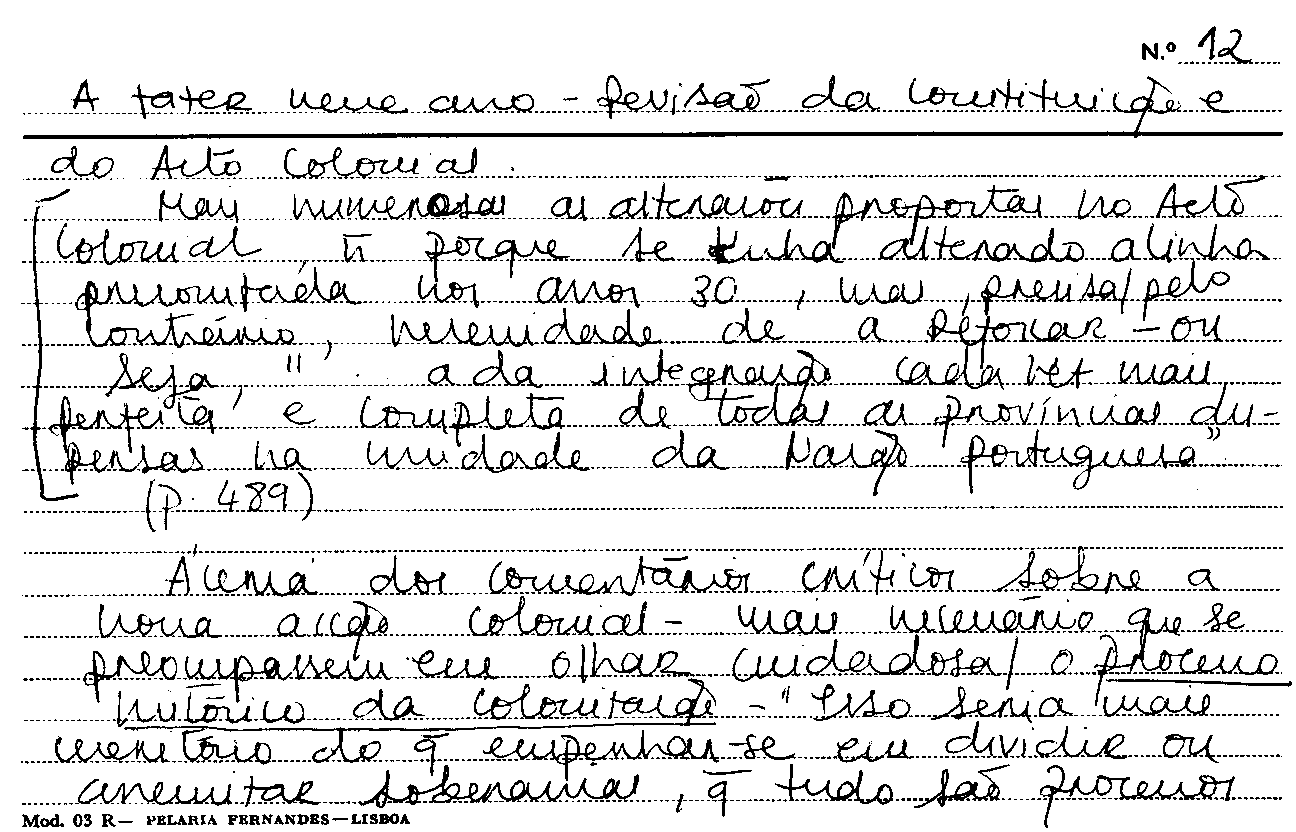 N.º 12
A fazer nesse ano - Revisão da Constituição e
do Acto Colonial.
Mais numerosas as alterações propostas no Acto
Colonial, ñ porque se tinha alterado a linha
preconizada nos anos 30, mas, precisa/ pelo
contrário, necessidade de a reforçar - ou
seja, " a da integração cada vez mais
perfeita e completa de todas as províncias du-
pensas na unidade da Nação portuguesa"
(p. 489)
Ácima dos comentários críticos sobre a
nova acção colonial - mais necessário que se
preocupassem em olhar cuidadosa/ o processo
histórico da colonização - "Isso seria mais
meritório do q̄ empenhar-se em dividir ou
amenizar soberanias, q̄ tudo são processos
Mod. 03 R — PELARIA FERNANDES — LISBOA